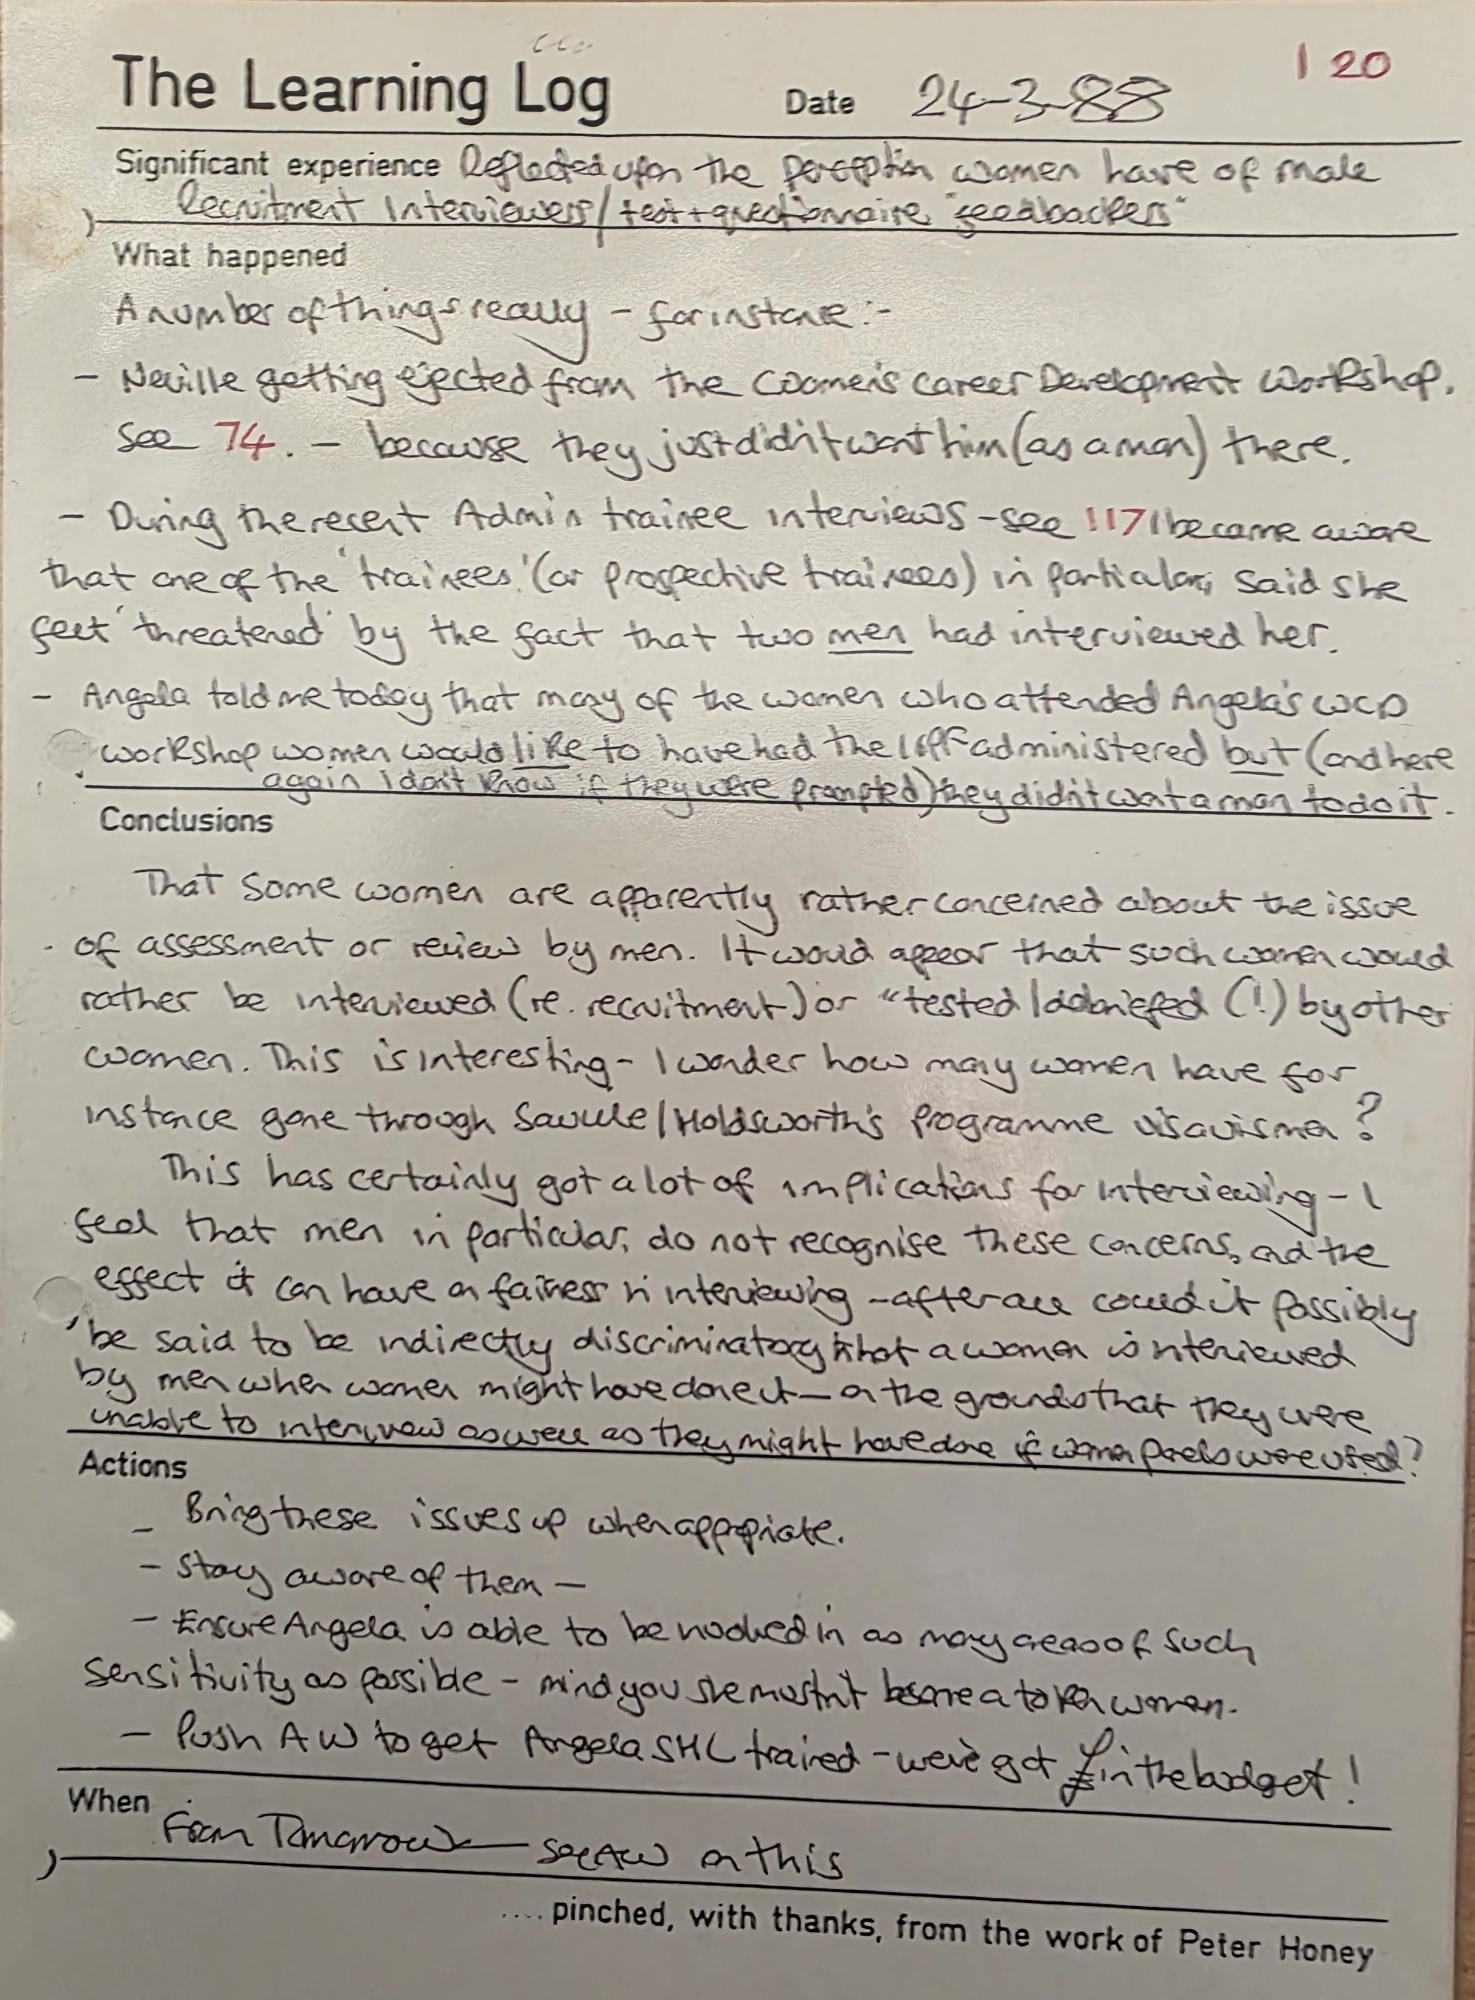 The Learning Log
Date 24-3-88
120
Significant experience Reflected upon the perception women have of male
Recruitment Interviewers/test+questionnaire "feedbackers"
What happened
A number of things really - for instance :-
- Neville getting ejected from the Women's Career Development Workshop.
See 74. - because they just didn't want him (as a man) there.
- During the recent Admin trainee interviews - see 117 I became aware
that one of the 'trainees' (or prospective trainees) in particular, said she
felt 'threatened' by the fact that two men had interviewed her.
- Angela told me today that many of the women who attended Angela's WCD
workshop women would like to have had the 16PF administered but (and here
again I don't know if they were prompted) they didn't want a man to do it.
Conclusions
That some women are apparently rather concerned about the issue
of assessment or review by men. It would appear that such women would
rather be interviewed (re. recruitment) or "tested / debriefed (!) by other
women. This is interesting - I wonder how many women have for
instance gone through Saville/Holdsworth's Programme visavis men?
This has certainly got a lot of implications for interviewing - I
feel that men in particular, do not recognise these concerns, and the
effect it can have on fairness in interviewing - after all could it possibly
be said to be indirectly discriminatory that a women is interviewed
by men when women might have done it - on the grounds that they were
unable to interview as well as they might have done if women panels were used?
Actions
- Bring these issues up when appropriate.
- Stay aware of them -
- Ensure Angela is able to be involved in as many areas of such
sensitivity as possible - mind you she mustn't become a token women.
- Push AW to get Angela SHL trained - we've got £ in the budget!
When From Tomorrow - see AW on this
.... pinched, with thanks, from the work of Peter Honey